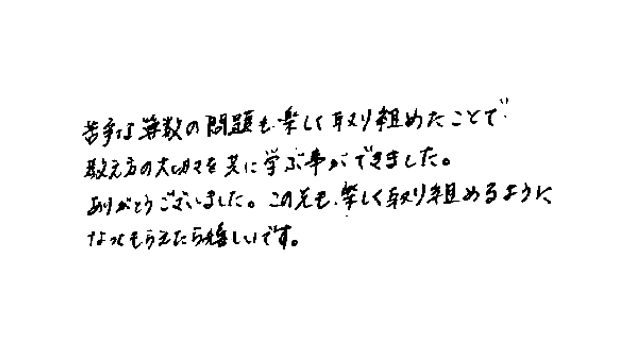 苦手な算数の問題も楽しく取り組めたことで
教え方の大切さを共に学ぶ事ができました。
ありがとうございました。この先も、楽しく取り組めるように
なってもらえたら嬉しいです。